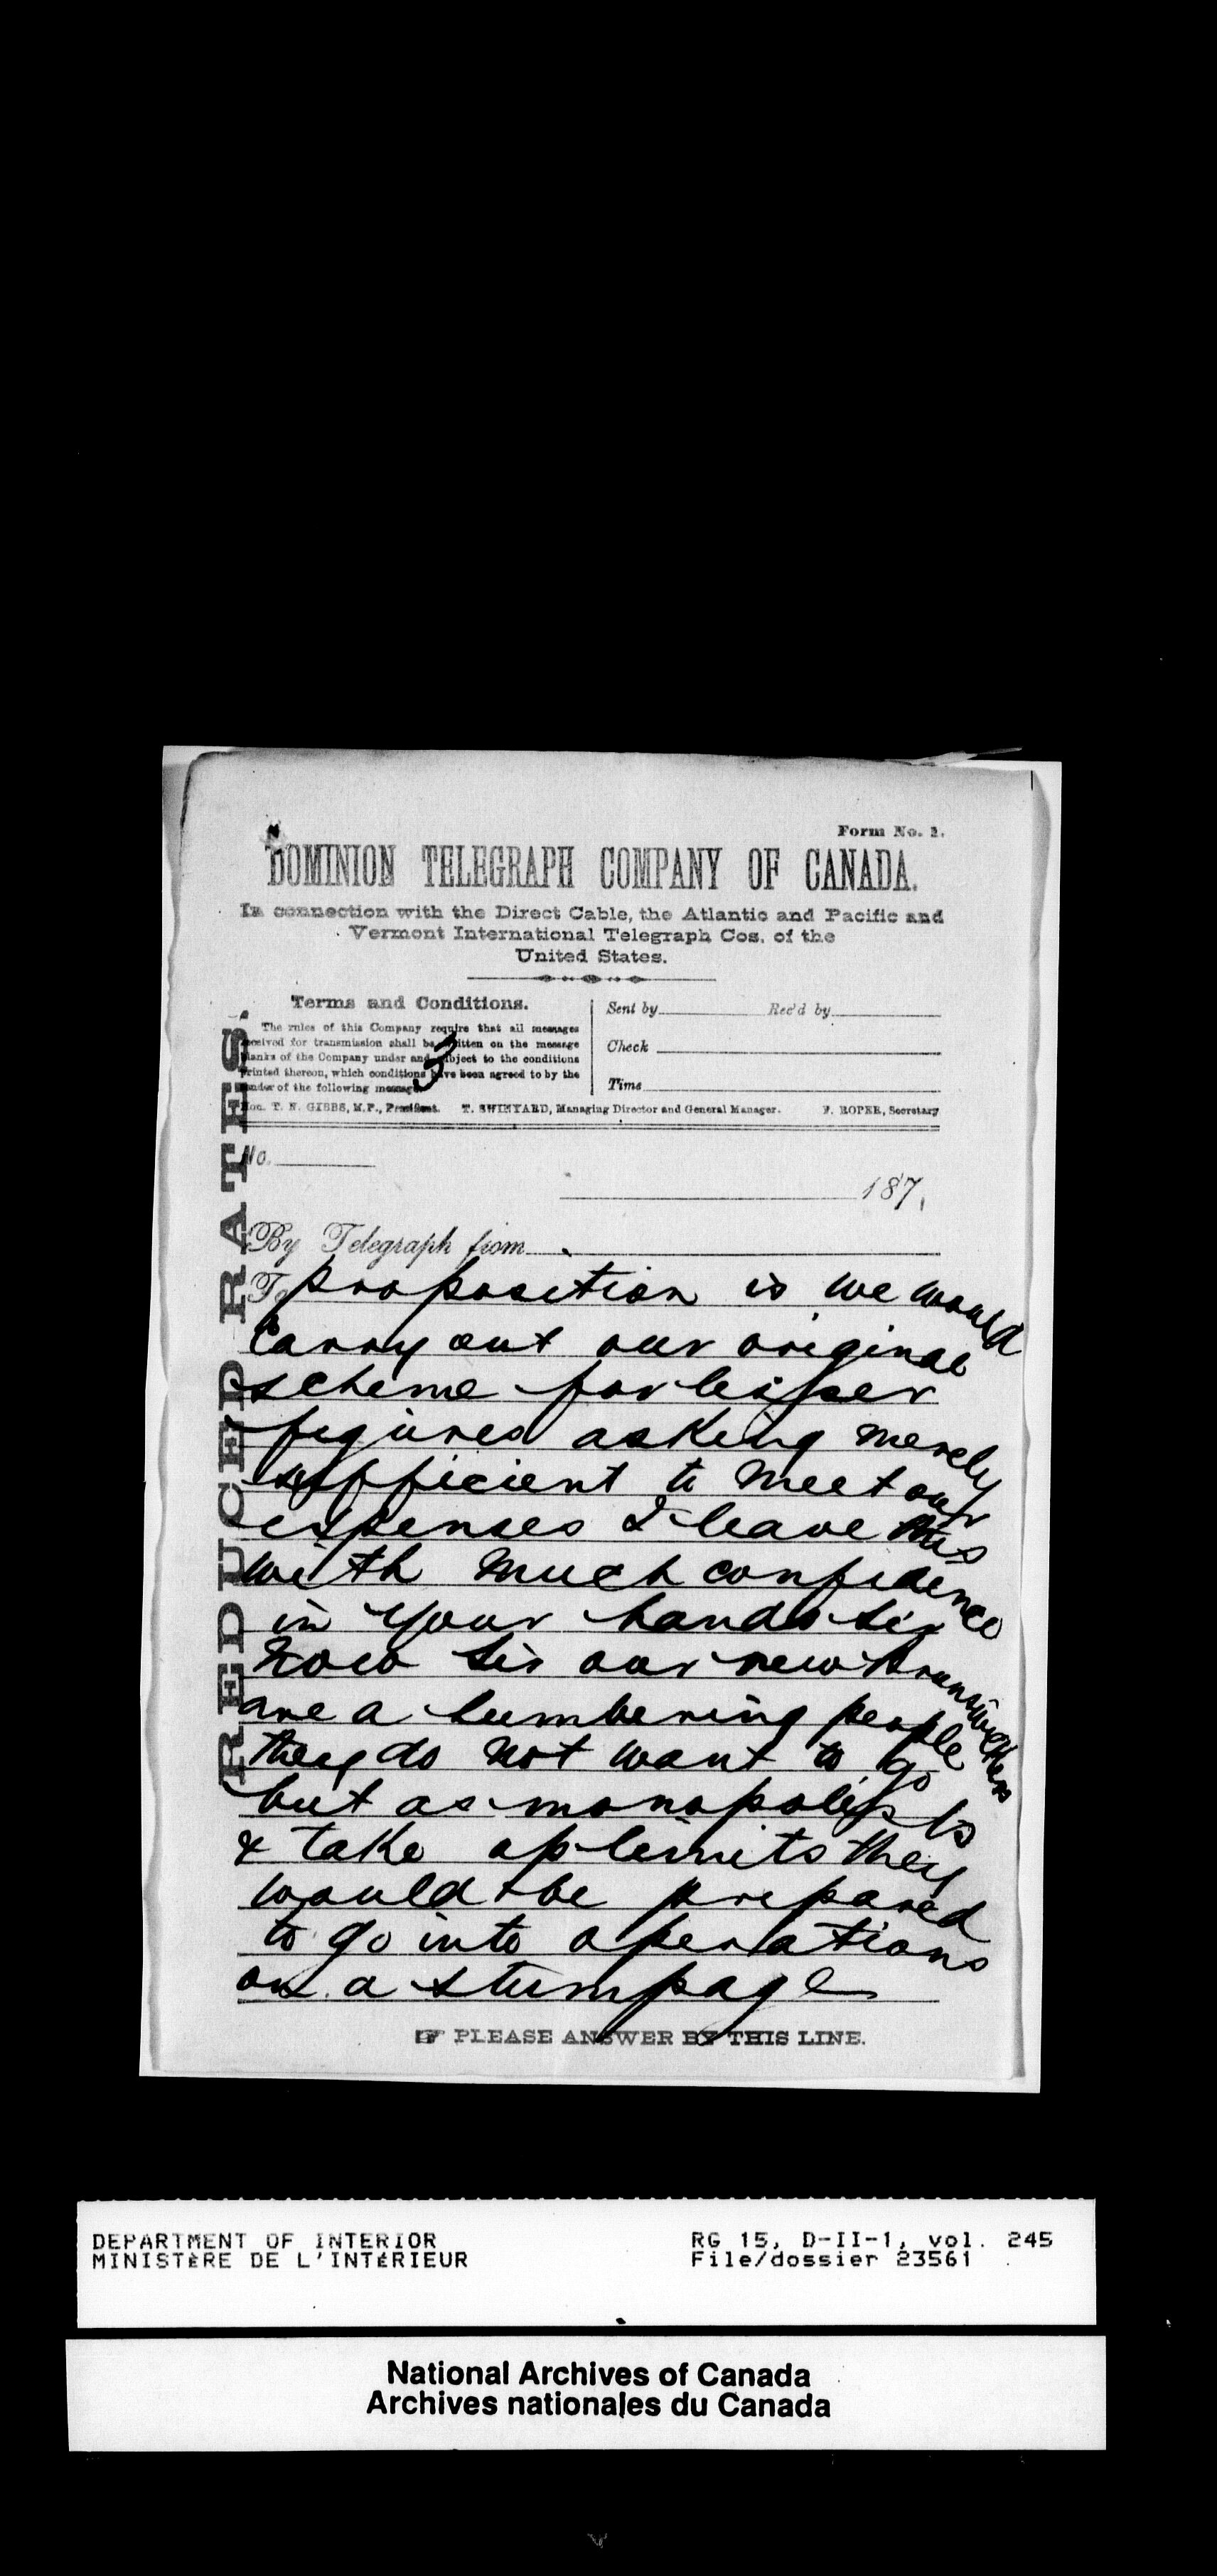 Form No. 1.
DOMINION TELEGRAPH COMPANY OF CANADA.
In connection with the Direct Cable, the Atlantic and Pacific and
Vermont International Telegraph Cos. of the
United States.
Terms and Conditions.
The rules of this Company require that all messages
received for transmission shall be written on the message
blanks of the Company under and subject to the conditions
printed thereon, which conditions have been agreed to by the
sender of the following message.
3
Sent by Rec'd by
Check
Time
Hon. T. N. GIBBS, M.P., President. T. SWINYARD, Managing Director and General Manager. F. ROPER, Secretary
REDUCED RATES.
No.
187
By Telegraph from
To proposition is we would
carry out our original
scheme for lesser
figures asking merely
sufficient to meet our
expenses I leave this
with much confidence
in your hands sir
now sir our new brunswickers
are a lumbering people
they do not want to go
but as monopolists
& take up limits they
would be prepared
to go into operations
on a stumpage
PLEASE ANSWER BY THIS LINE.
DEPARTMENT OF INTERIOR RG 15, D-II-1, vol. 245
MINISTÈRE DE L'INTÉRIEUR File/dossier 23561
National Archives of Canada
Archives nationales du Canada